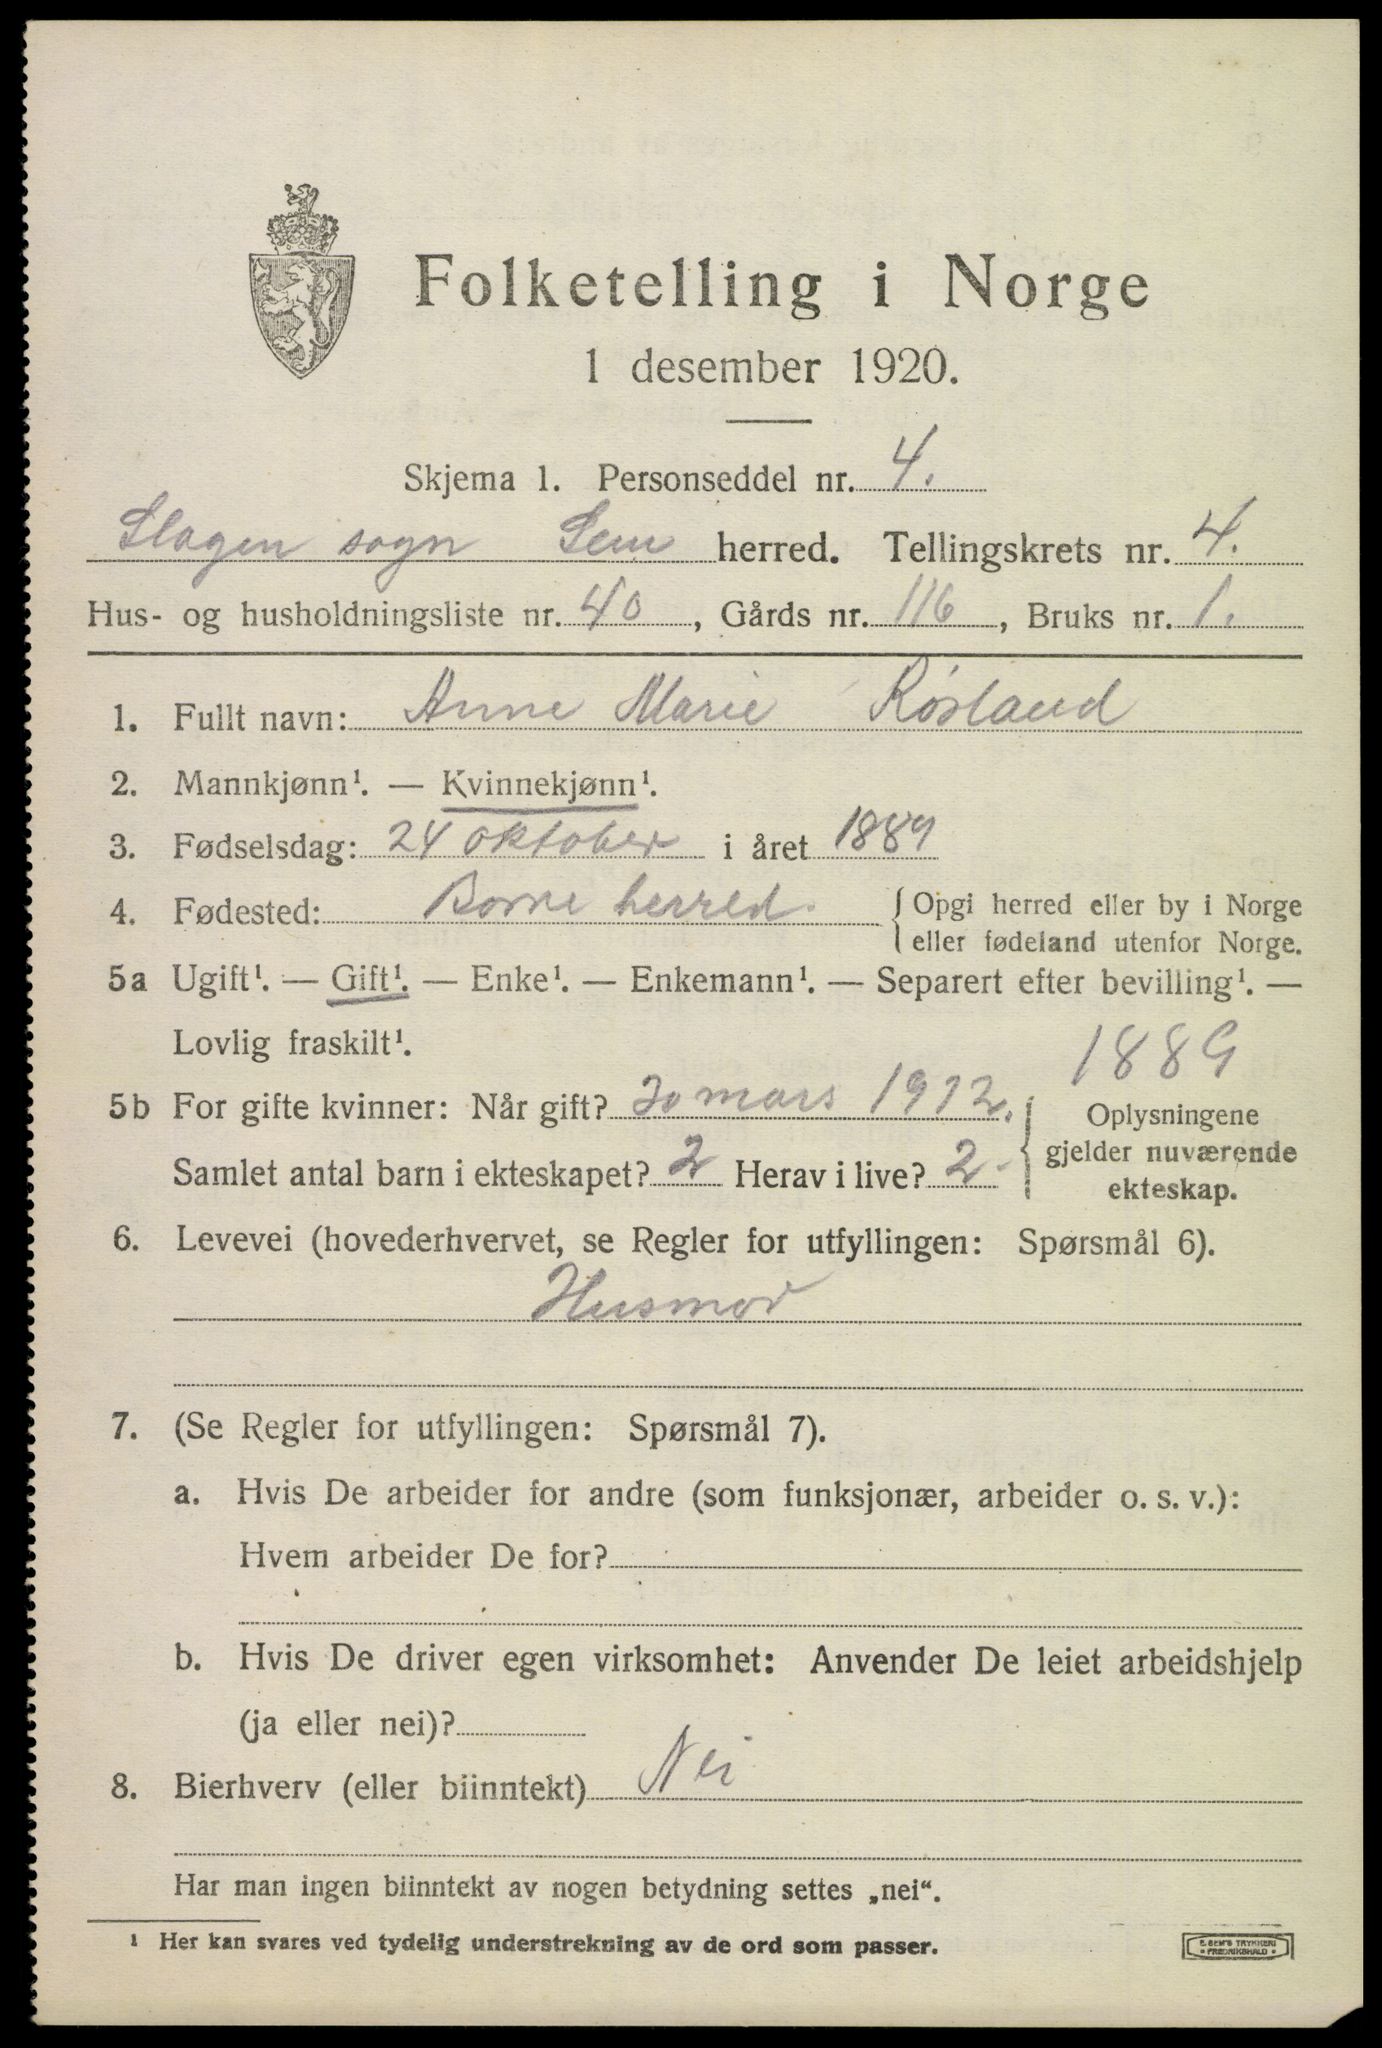 Folketelling i Norge
1 desember 1920.
Skjema 1. Personseddel nr. 4.
Slagen sogn Sem herred. Tellingskrets nr. 4.
Hus- og husholdningsliste nr. 40, Gårds nr. 116, Bruks nr. 1.
1. Fullt navn: Anne Marie Røsland
2. Mannkjønn¹. — Kvinnekjønn¹.
3. Fødselsdag: 24 oktober i året 1889
4. Fødested: Borre herred. { Opgi herred eller by i Norge
eller fødeland utenfor Norge.
5a Ugift¹. — Gift¹. — Enke¹. — Enkemann¹. — Separert efter bevilling¹. —
Lovlig fraskilt¹.
1889
5b For gifte kvinner: Når gift? 30 mars 1912. } Oplysningene
gjelder nuværende
ekteskap.
Samlet antal barn i ekteskapet? 2 Herav i live? 2
6. Levevei (hovederhvervet, se Regler for utfyllingen: Spørsmål 6).
Husmor
7. (Se Regler for utfyllingen: Spørsmål 7).
a. Hvis De arbeider for andre (som funksjonær, arbeider o. s. v.):
Hvem arbeider De for?
b. Hvis De driver egen virksomhet: Anvender De leiet arbeidshjelp
(ja eller nei)?
8. Bierhverv (eller biinntekt) Nei
Har man ingen biinntekt av nogen betydning settes „nei“.
¹ Her kan svares ved tydelig understrekning av de ord som passer.
E. SEM'S TRYKKERI
• FREDRIKSHALD •